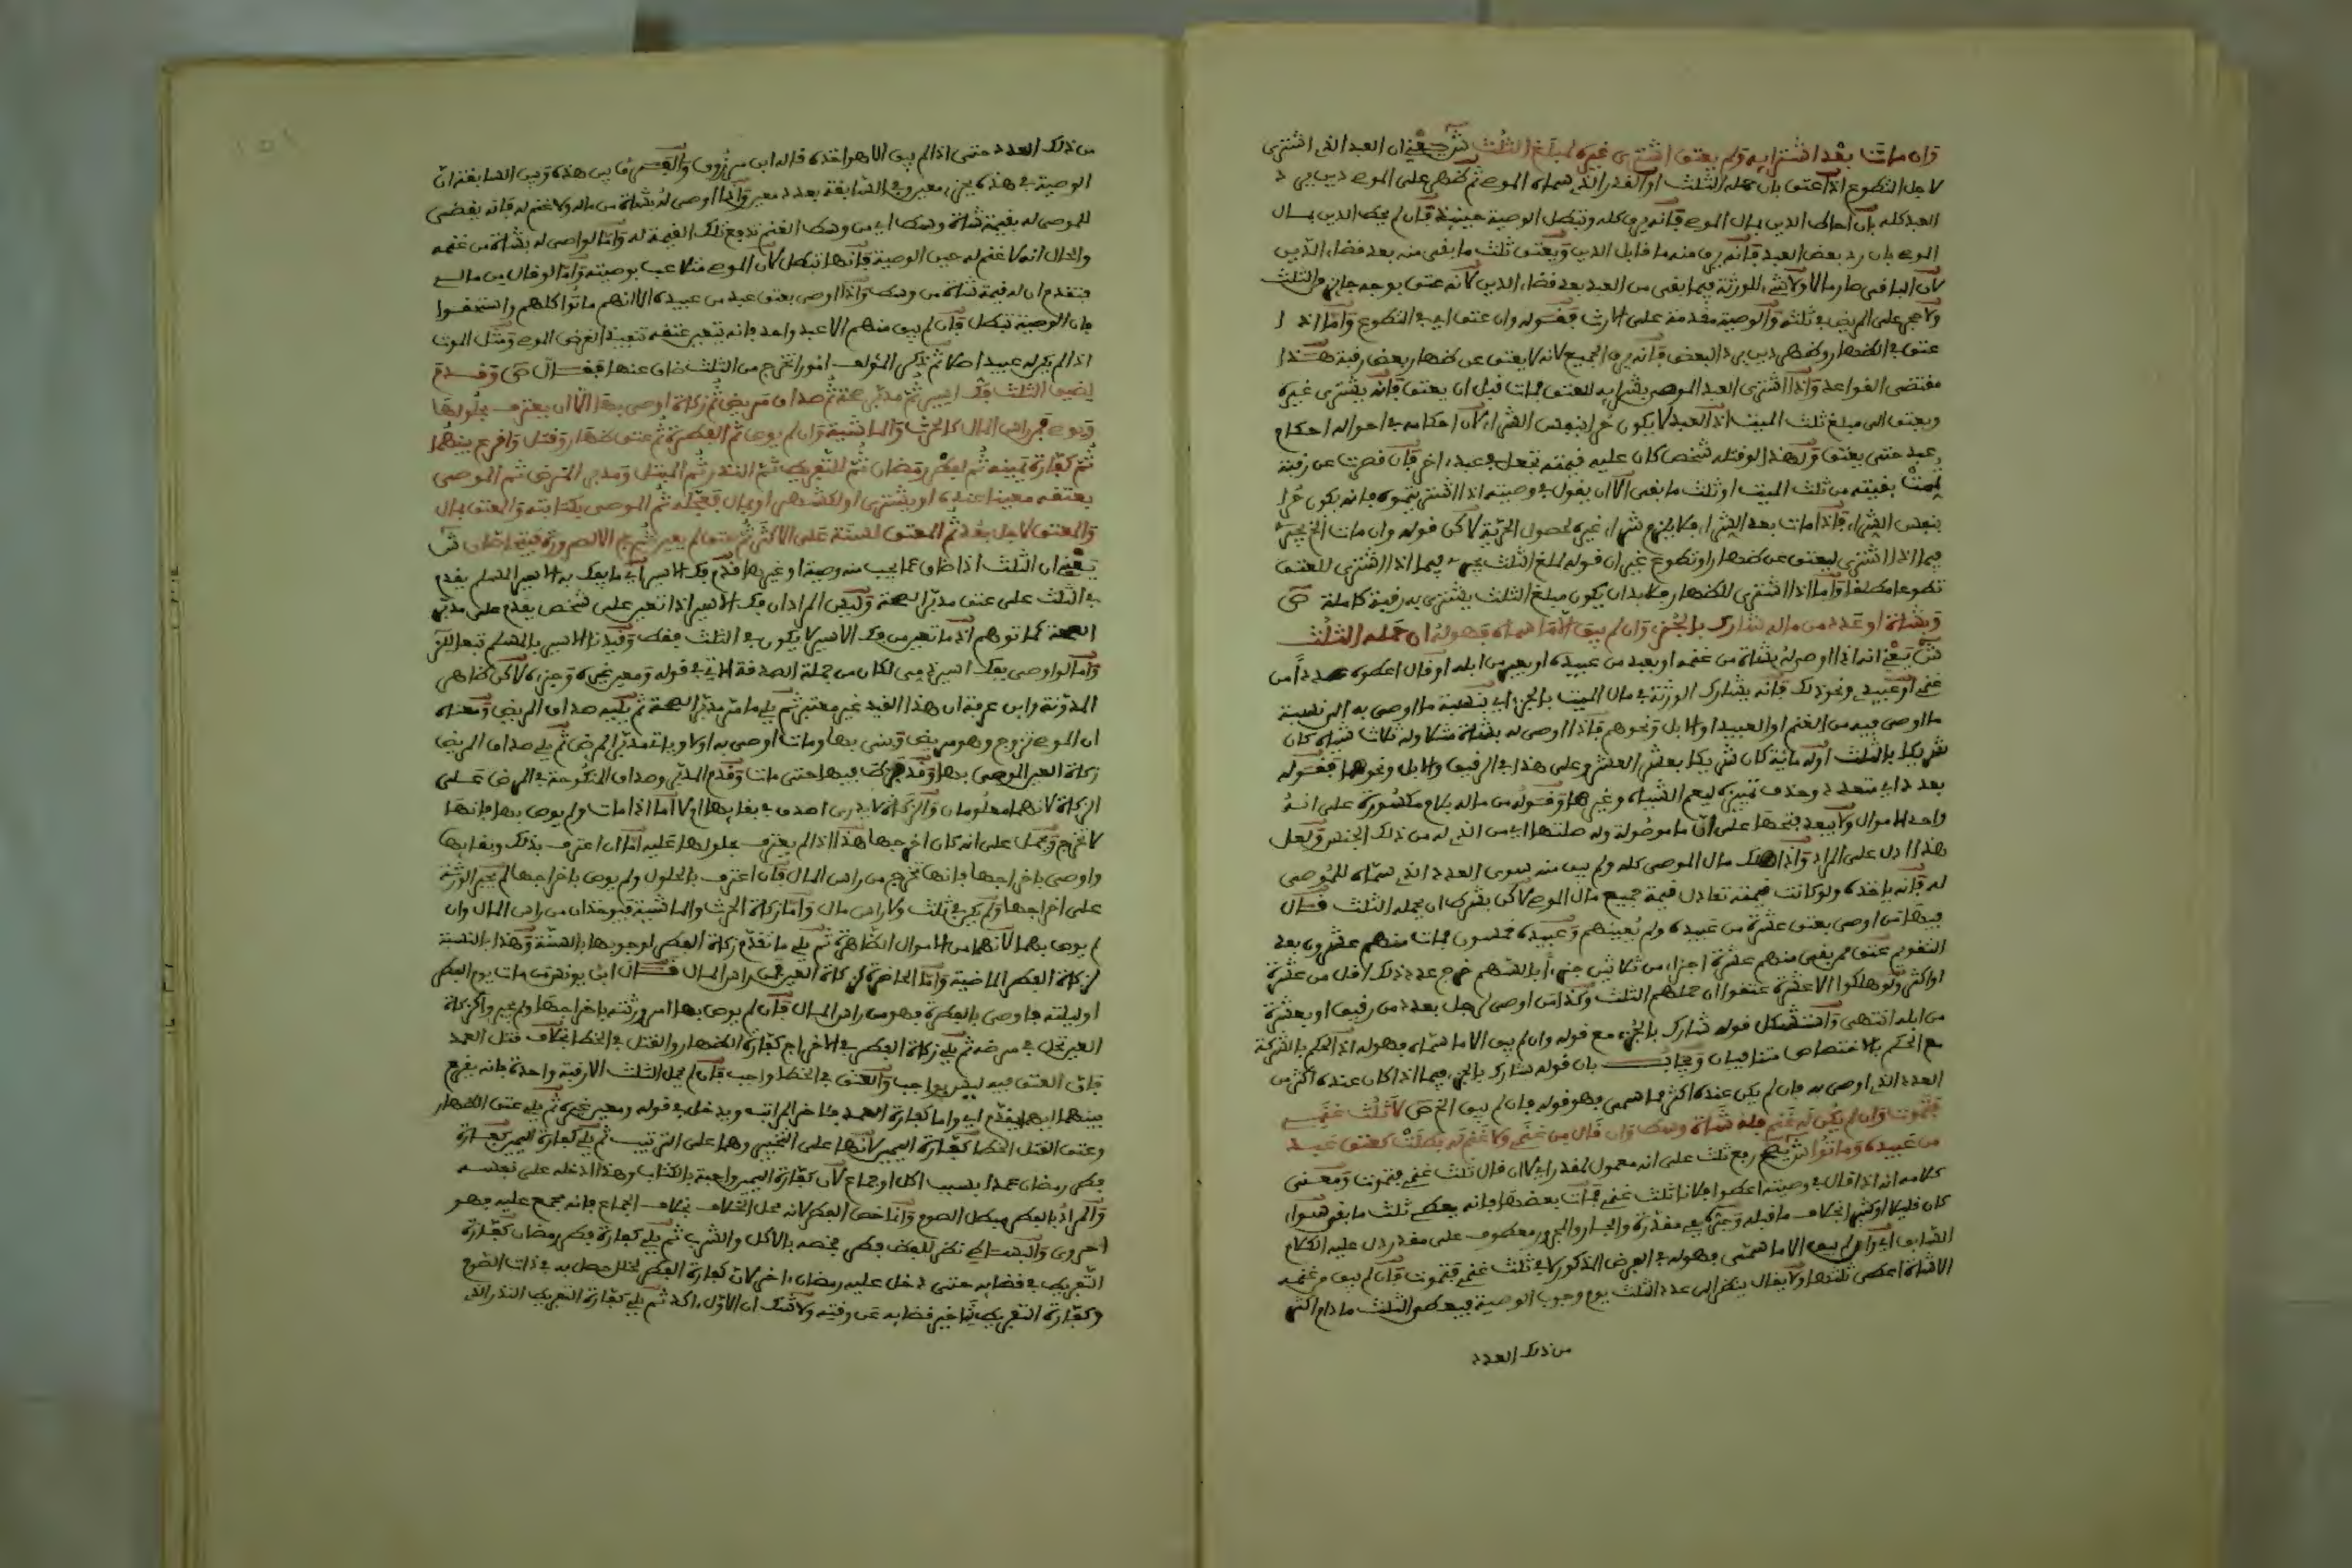 وان مات بعد اشترايه ولم يعتق اشتري غيره لمبلغ الثلث ش يعني ان العبد الذي اشتري
لاجل التطوع اذا عتق بان حمله الثلث او القدر الذي سماه الموصي ثم ظهر على الموصي دين يرد
العبد كله بان احاط الدين بمال الموصي فانه يرق كله وتبطل الوصية حينئذ فان لم يحط الدين بمال
الموصي بان رد بعض العبد فانه يرق منه ما قابل الدين ويعتق ثلث ما بقي منه بعد قضاء الدين
لان الباقي صار مالا ولا شيء للورثة فيما بقي من العبد بعد قضاء الدين لانه عتق بوجه جايز والثلث
ولا حجر على المريض في ثلثه والوصية مقدمة على الارث فقوله وان عتق اي في التطوع واما اذا
عتق في الظهار وظهر دين يرد البعض فانه يرق الجميع لانه لا يعتق عن ظهار بعض رقبة هذا
مقتضى القواعد واذا اشتري العبد الموصى بشرايه للعتق فمات قبل ان يعتق فانه يشترى غيره
ويعتق الى مبلغ ثلث الميت اذ العبد لا يكون حرا بنفس الشراء لان احكامه في احواله احكام
عبد حتى يعتق ولهذا لو قتله شخص كان عليه قيمته تجعل في عبد اخر فان قصرت عن رقبة
تممت بقيته من ثلث الميت او ثلث ما بقي الا ان يقول في وصيته اذا اشتريتموه فانه يكون حرا
بنفس الشراء فاذا مات بعد الشراء فلا يلزم شراء غيره لحصول الحرية لاكن قوله وان مات الخ يجري
فيما اذا اشتري ليعتق عن ظهار او تطوع غير ان قوله لمبلغ الثلث يجري فيما اذا اشتري للعتق
تطوعا مطلقا واما اذا اشتري للظهار فلا بد ان يكون مبلغ الثلث يشترى به رقبة كاملة ص
وبشاة او عدد من ماله شارك بالجزء وان لم يبق الا ما سماه فهو له ان حمله الثلث
ش يعني انه اذا اوصى له بشاة من غنمه او بعبد من عبيده او بعير من ابله او قال اعطوه عددا من
غنمي او عبيدي ونحو ذلك فانه يشارك الورثة في مال الميت بالجزء اي بنسبة ما اوصي به الى نسبة
ما اوصي فيه من الغنم او العبيد او الابل ونحوهم فاذا اوصى له بشاة مثلا وله ثلاث شياه كان
شريكا بالثلث او له مائة كان شريكا بعشر العشر وعلى هذا في الرقيق والابل ونحوها فقوله
بعدد اي متعدد وحذف تمييزه ليعم الشياه وغيرها وقوله من ماله بلام مكسورة على انه
واحد الاموال ولا يبعد فتحها على ان ما موصولة وله صلتها اي من الذي له من ذلك الجنس ولعل
هذا ادل على المراد واذا هلك مال الموصي كله ولم يبق منه سوى العدد الذي سماه للموصى
له فانه ياخذه ولو كانت قيمته تعادل قيمة جميع مال الموصي لاكن بشرط ان يحمله الثلث قال
فيها من اوصى بعتق عشرة من عبيده ولم يعينهم وعبيده خمسون فمات منهم عشرون بعد
التقويم عتق ممن بقي منهم عشرة اجزاء من ثلاثين جزءا بالسهم خرج عدد ذلك اقل من عشرة
او اكثر ولو هلكوا الا عشرة عتقوا ان حملهم الثلث وكذا من اوصى لرجل بعدد من رقيق او بعشرة
من ابله انتهى واستشكل قوله شارك بالجزء مع قوله وان لم يبق الا ما سماه فهو له اذ الحكم بالشركة
مع الحكم بالاختصاص متنافيان ويجاب بان قوله شارك بالجزء فيما اذا كان عنده اكثر من
العدد الذي اوصى به فان لم يكن عنده اكثر مما سمى فهو قوله فان لم يبق الخ ص لا ثلث غنمي
فتموت وان لم يكن له غنم فله شاة وسط وان قال من غنمي ولا غنم له بطلت كعتق عبد
من عبيده وماتوا ش يصح رفع ثلث على انه معمول لمقدر اي لا ان قال ثلث غنمي فتموت ومعنى
كلامه انه اذا قال في وصيته اعطوا فلانا ثلث غنمي فمات بعضها فانه يعطى ثلث ما بقي سواء
كان قليلا او كثيرا بخلاف ما قبله وجزء كايه مقدرة والجار والمجرور معطوف على مقدر دل عليه الكلام
السابق اي وان لم يبق الا ما سمى فهو له في الفرض المذكور لا في ثلث غنمي فتموت فان لم يبق من غنمه
الا شاة اعطي ثلثها ولا يقال ينظر الى عدد الثلث يوم وجوب الوصية فيعطى الثلث ما دام اكثر
من ذلك العدد
من ذلك العدد حتى اذا لم يبق الا هو اخذه قاله ابن مرزوق والفرق بين هذه وبين السابقة ان
الوصية في هذه بجزء معين وفي السابقة بعدد معين واذا اوصى له بشاة من ماله ولا غنم له فانه يقضى
للموصى له بقيمة شاة وسط اي من وسط الغنم تدفع تلك القيمة له واما لو اوصى له بشاة من غنمه
والحال انه لا غنم له حين الوصية فانها تبطل لان الموصي متلاعب بوصيته واما لو قال من مالي
فتقدم ان له قيمة شاة من وسط واذا اوصى بعتق عبد من عبيده الا انهم ماتوا كلهم او استحقوا
فان الوصية تبطل فان لم يبق منهم الا عبد واحد فانه يتعين عتقه تنفيذا لغرض الموصي ومثل الموت
اذا لم يكن له عبيد اصلا ثم ذكر المؤلف امورا تخرج من الثلث ضاق عنها فقال ص وقدم
لضيق الثلث فك اسير ثم مدبر صحة ثم صداق مريض ثم زكاة اوصي بها الا ان يعترف بحلولها
ويوصي فمن راس المال كالحرث والماشية وان لم يوص ثم الفطرة ثم عتق ظهار وقتل واقرع بينهما
ثم كفارة يمينه ثم لفطر رمضان ثم للتفريط ثم النذر ثم المبتل ومدبر المرض ثم الموصى
بعتقه معينا عنده او يشترى او لكشهر او بمال فعجله ثم الموصى بكتابته والمعتق بمال
والمعتق لاجل بعد ثم المعتق لسنة على الاكثر ثم عتق لم يعين ثم حج الا لصرورة فيتحاصان ش
يعني ان الثلث اذا ضاق عما يجب منه وصية او غيرها قدم فك الاسير اي ما يفك به الاسير المسلم يقدم
في الثلث على عتق مدبر الصحة وليس المراد ان فك الاسير اذا تعين على شخص يقدم على مدبر
الصحة كما توهم اذ ما تعين من فك الاسير لا يكون في الثلث فقط وقيدنا الاسير بالمسلم تبعا
واما لو اوصى بفك اسير ذمي لكان من جملة الصدقة الاتي في قوله ومعين غيره وجزءه لاكن ظاهر
المدونة وابن عرفة ان هذا القيد غير معتبر ثم يلي ما مر مدبر الصحة ثم يليه صداق المريض ومعناه
ان الموصي تزوج وهو مريض وبنى بها ومات اوصى به او لا ويات مدبر المرض ثم يلي صداق المريض
زكاة العين الموصى بها وقد فرط فيها حتى مات وقدم المدبر وصداق المنكوحة في المرض على
الزكاة لانهما معلومان والزكاة لا يدرى اصدق في بقايها ام لا اما اذا مات ولم يوص بها فانها
لا تخرج ويحمل على انه كان اخرجها هذا اذا لم يعترف بحلولها عليه اما ان اعترف بذلك وبقايها
واوصى باخراجها فانها تخرج من راس المال فان اعترف بالحلول ولم يوص باخراجها لم يجبر الورثة
على اخراجها ولم يكن في ثلث ولا راس مال واما زكاة الحرث والماشية فيوخذان من راس المال وان
لم يوص بهما لانهما من الاموال الظاهرة ثم يلي ما تقدم زكاة الفطر لوجوبها بالسنة وهذا بالنسبة
لزكاة الفطر الماضية واما الحاضرة كزكاة العين فمن راس المال قال ابن يونس من مات يوم الفطر
او ليلته فاوصى بالفطرة فهو من راس المال فان لم يوص بها امر ورثته باخراجها ولم يجبروا كزكاة
العين تحل في مرضه ثم يلي زكاة الفطر في الاخراج كفارة الظهار والقتل في الخطا بخلاف قتل العمد
فان العتق فيه ليس بواجب والعتق في الخطا واجب فان لم يحمل الثلث الا رقبة واحدة فانه يقرع
بينهما ايهما يقدم اي واما كفارة العمد فاخر المراتب ويدخل في قوله ومعين غيره ثم يلي عتق الظهار
وعتق القتل الخطا كفارة اليمين لانها على التخيير وهما على الترتيب ثم يلي كفارة اليمين كفارة
فطر رمضان عمدا بسبب اكل او جماع لان كفارة اليمين واجبة بالكتاب وهذا ادخله على نفسه
والمراد بالفطر مبطل الصوم وانما خص الفطر لانه محل الخلاف بخلاف الجماع فانه مجمع عليه فهو
احروي والبساطي نظر للفظ فطر فخصه بالاكل والشرب ثم يلي كفارة فطر رمضان كفارة
التفريط في قضايه حتى دخل عليه رمضان اخر لان كفارة الفطر لخلل حصل به في ذات الصوم
وكفارة التفريط لتاخير قضايه عن وقته ولا شك ان الاول اكد ثم يلي كفارة التفريط النذر الذي